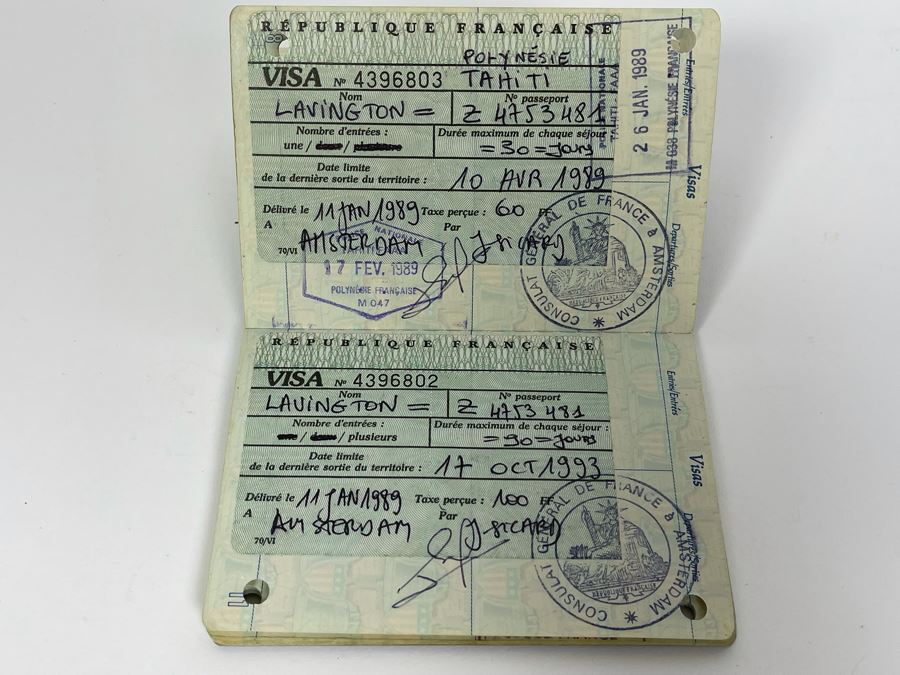 RÉPUBLIQUE FRANÇAISE
POLYNÉSIE
VISA No 4396803 TAHITI
Nom No passeport
LAVINGTON = Z 4753481
Nombre d'entrées : Durée maximum de chaque séjour
une / = 30 = jours
Date limite
de la dernière sortie du territoire : 10 AVR 1989
Délivré le 11 JAN 1989 Taxe perçue : 60 FF
A AMSTERDAM Par J SICARD
70/VI
26 JAN. 1989
TAHITI FAAA
Entries/Entrées
Visas
Departures/Sorties
NATIONALE
17 FEV. 1989
POLYNÉSIE FRANÇAISE
M 047
CONSULAT GÉNÉRAL DE FRANCE à AMSTERDAM
RÉPUBLIQUE FRANÇAISE
VISA No 4396802
Nom No passeport
LAVINGTON = Z 4753481
Nombre d'entrées : Durée maximum de chaque séjour :
/ / plusieurs = 90 = jours
Date limite
de la dernière sortie du territoire : 17 OCT 1993
Délivré le 11 JAN 1989 Taxe perçue : 100 FF
A AMSTERDAM Par J SICARD
70/VI
Entries/Entrées
Visas
Departures/Sorties
CONSULAT GÉNÉRAL DE FRANCE à AMSTERDAM